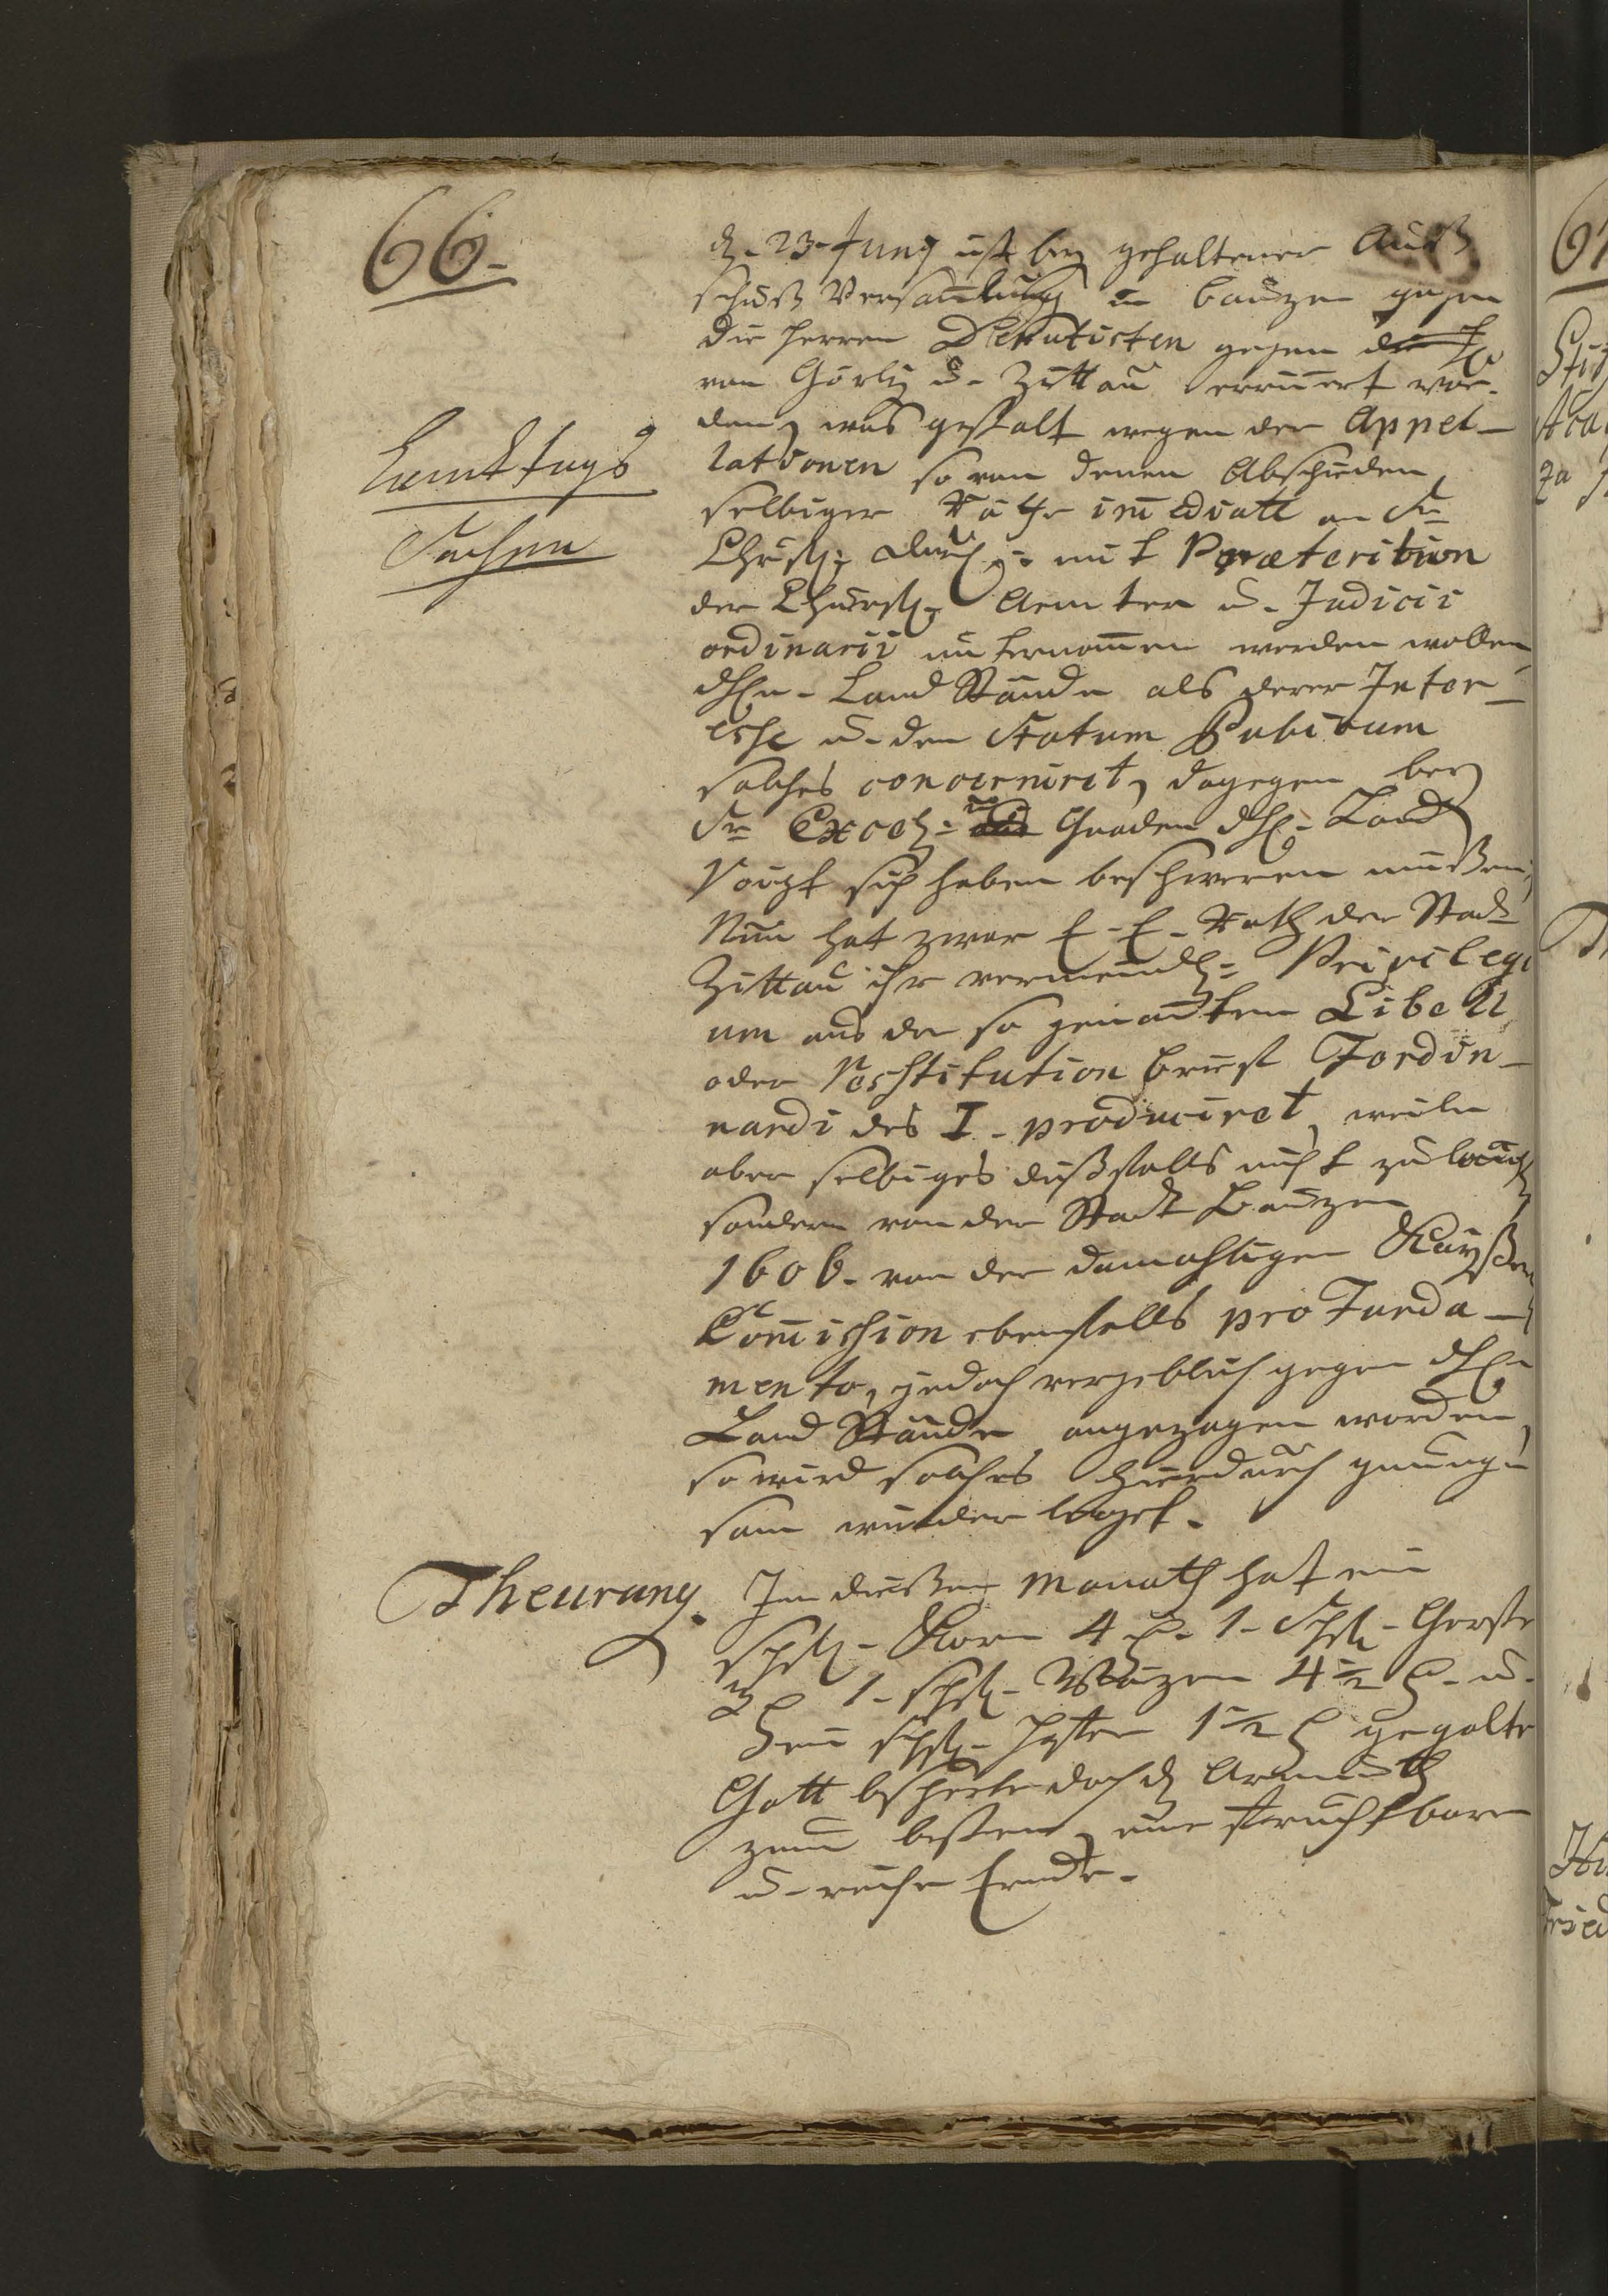 66.
d. 23. Juny ist bey gehaltener Auß
schuß Versamlung in Bauzen gegen
die Herren Deputirten gegen
von Görliz u. Zittau erinnert wor-
den, was gestalt wegen der Appel-
Landtags
lationen so von denen Abschieden
selbiger Räthe immediate an Sr
Sachen
Churfl. Durchl. mit Præterition
der Churfl. Aemter u. Judicii
ordinarii unternommen werden wollen
Land Stände als derer Inter-
esse u. den Statum Publicum
solches concerniret, dagegen bey
Sr Excell. Gnaden Land
Voigt sich haben beschweren müßen,
Nun hat zwar E. E. Rath der Stadt
Zittau ihr vermeindl. Privilegi
um aus der so genanten Libell
oder Restitution Brieff Ferdin-
nandi des I. produciret, weiln
aber selbiges dißfalls nicht zulängl
sondern von der Stadt Bauzen
1606. von der damahligen Kayßerl
Commission ebenfalls pro Funda-
mento, jedoch vergeblich gegen
Land Stände angezogen worden,
so wird solches hierdurch genung-
sam wiederleget.
Theurung. Im dießen Monath hat ein
Schfl. Korn 4 1. Schfl. Gerste
3 1. Schfl. Waizen 4 1/2 u.
ein Schfl. Hafer 1 1/2 gegolte
Gott beschere doch Armuth
zum besten, eine fruchtbare
u. reiche Erndte.